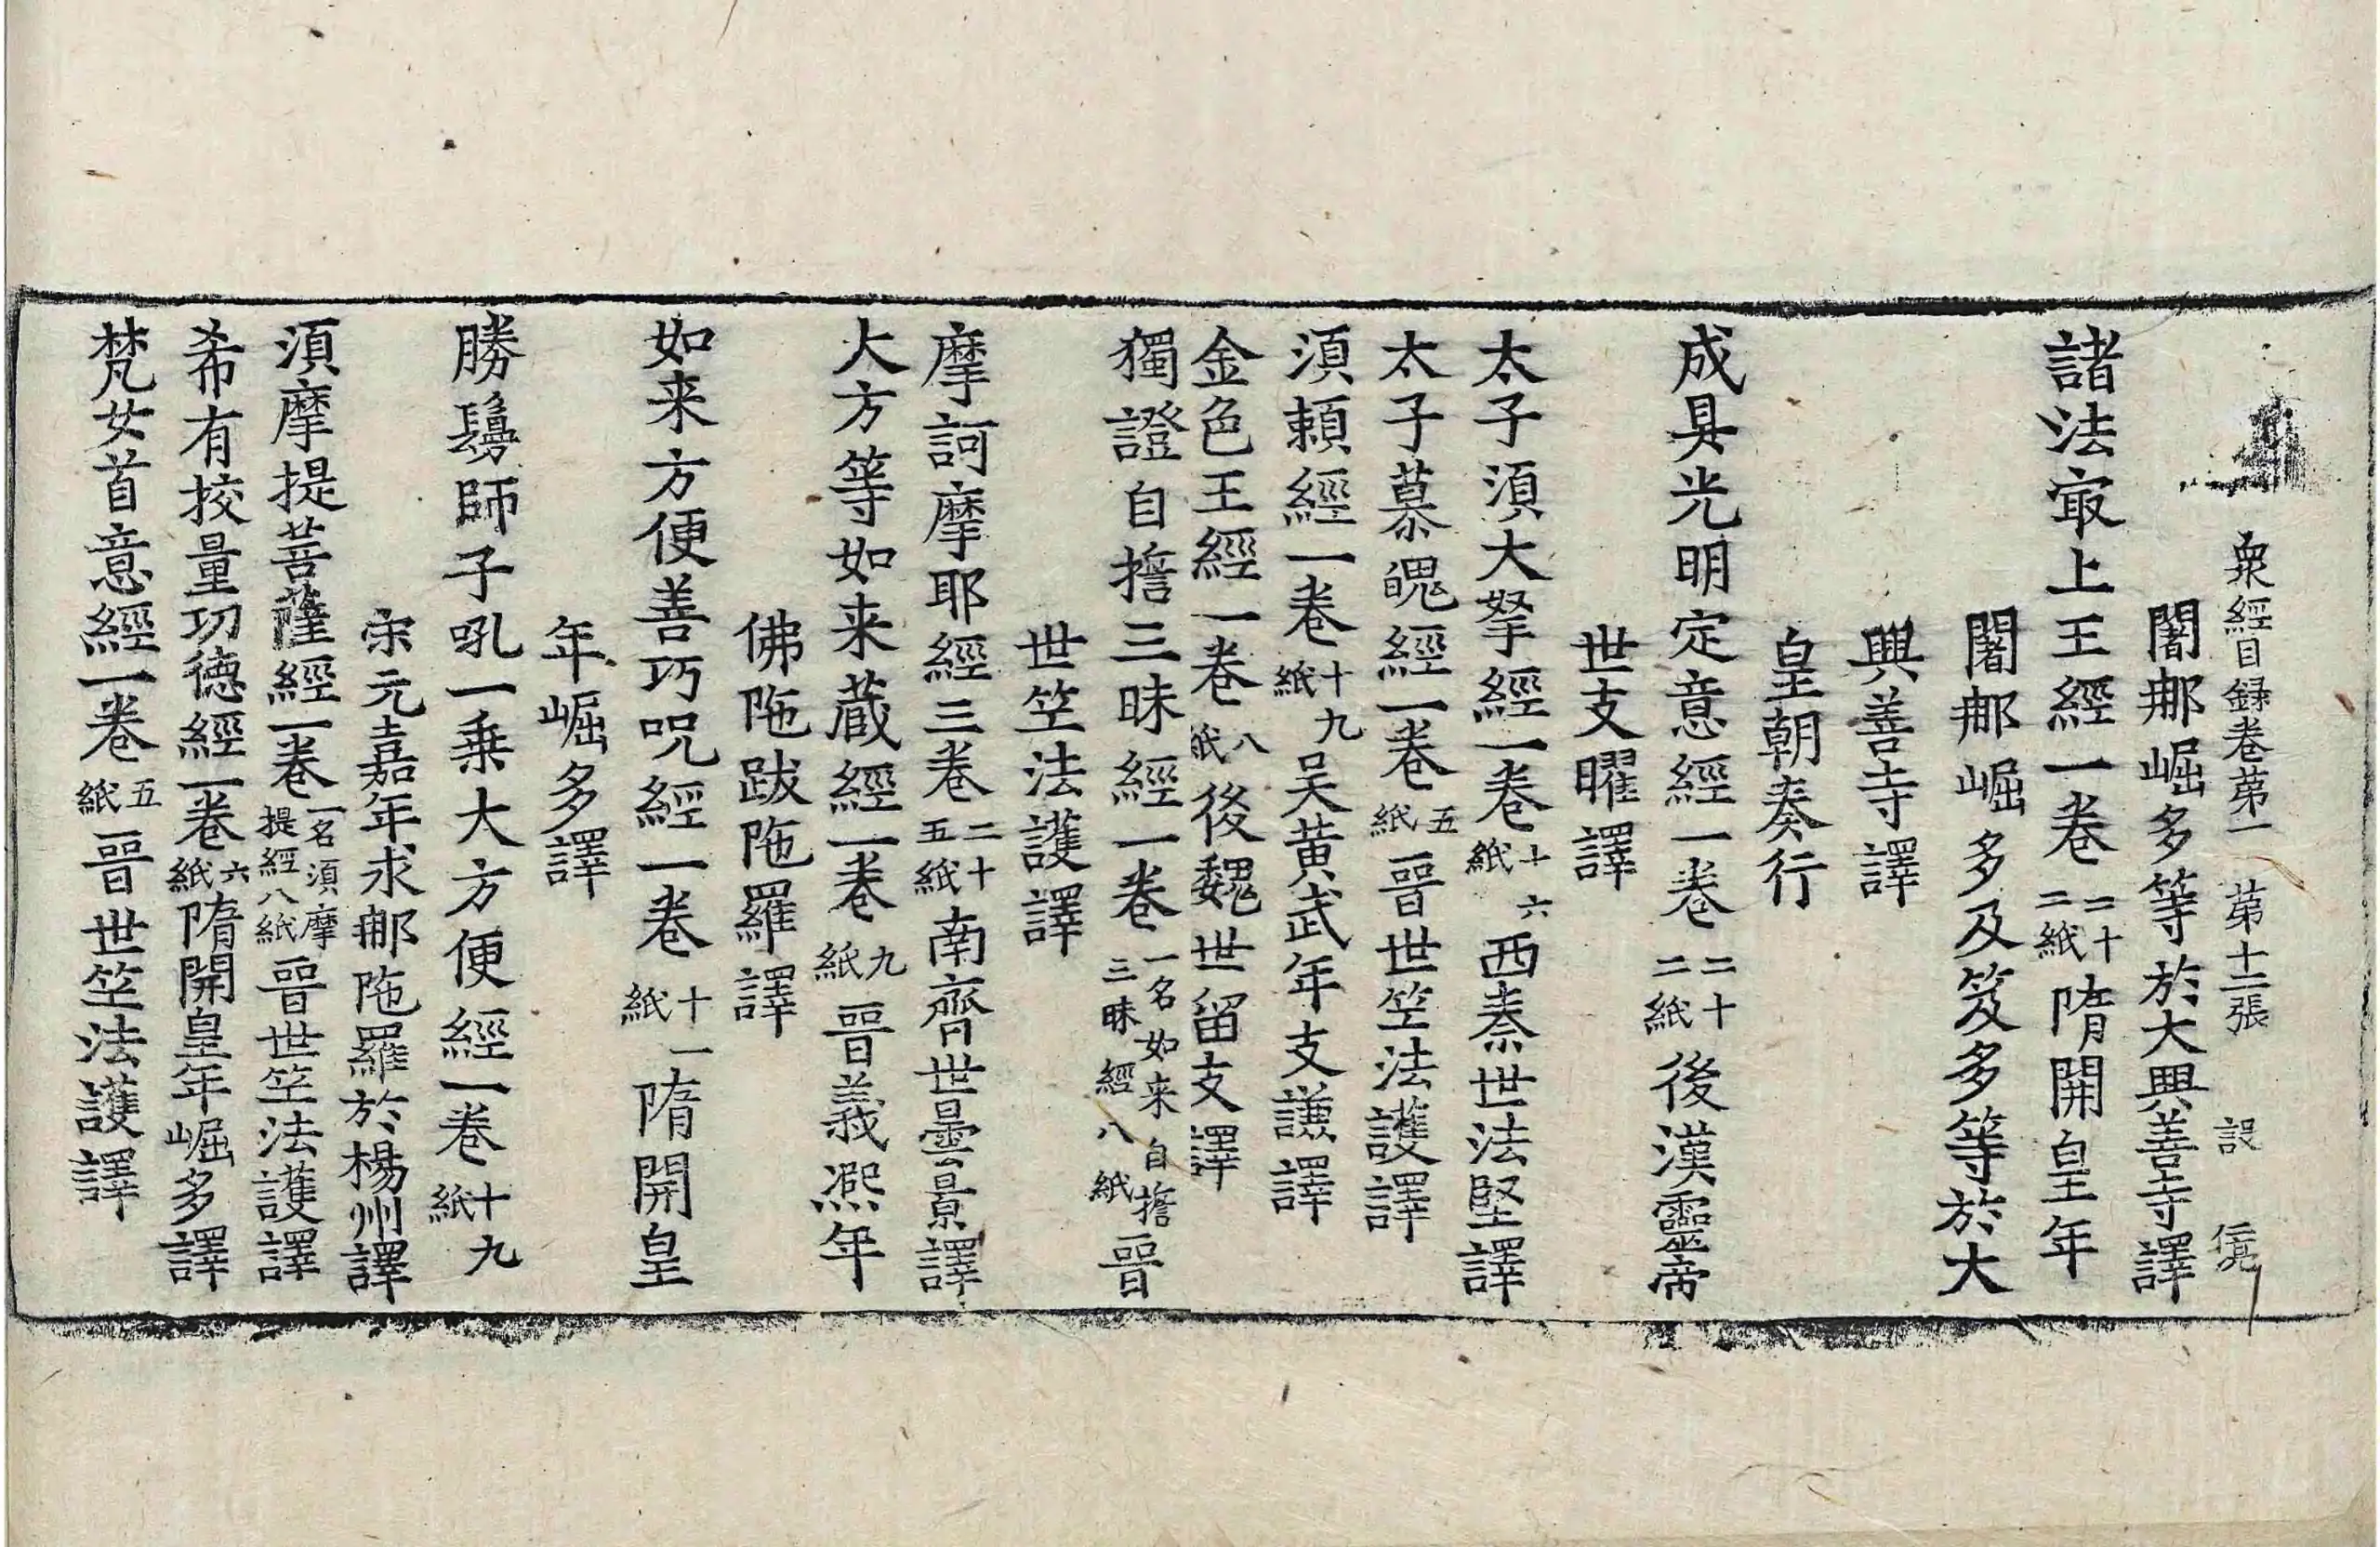 衆經目録卷苐一 苐十二張 設
闍那崛多等於大興善寺譯
諸法㝡上王經一卷二十二紙隋開皇年
闍那崛多及笈多等於大
興善寺譯
皇朝奏行
成具光明定意經一卷二十二紙後漢靈帝
世支曜譯
太子湏大拏經一卷十六紙西秦世法堅譯
太子慕魄經一卷五紙晉世竺法護譯
湏賴經一卷十九紙吴黄武年支謙譯
金色王經一卷八紙後魏世留支譯
獨證自擔三昧經一卷一名如来自擔三昧經八紙晉
世竺法護譯
摩訶摩耶經三卷二十五紙南齊世曇景譯
大方等如来蔵經一卷九紙晉義熈年
佛陁跋陁羅譯
如来方便善巧呪經一卷十一紙隋開皇
年崛多譯
勝鬘師子吼一乗大方便經一卷十九紙
宋元嘉年求那陁羅於楊州譯
湏摩提菩薩經一卷一名湏摩提經八紙晉世竺法護譯
希有挍量功德經一卷六紙隋開皇年崛多譯
梵女首意經一卷五紙晉世竺法護譯